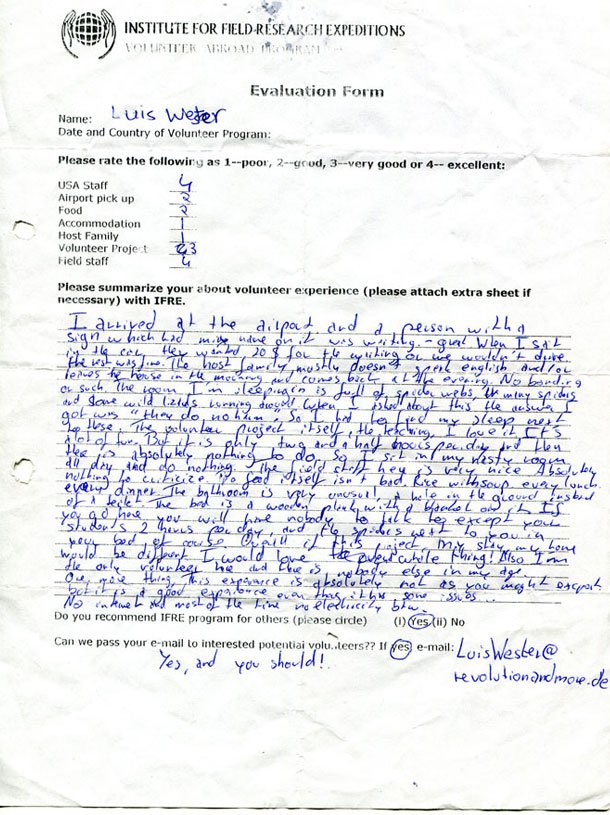 INSTITUTE FOR FIELD-RESEARCH EXPEDITIONS
VOLUNTEER ABROAD PROGRAM
Evaluation Form
Name: Luis Wester
Date and Country of Volunteer Program:
Please rate the following as 1--poor, 2--good, 3--very good or 4-- excellent:
USA Staff 4
Airport pick up 2
Food 2
Accommodation 1
Host Family 1
Volunteer Project 3
Field staff 4
Please summarize your about volunteer experience (please attach extra sheet if
necessary) with IFRE.
I arrived at the airport and a person with a
sign which had mine name on it was waiting. - great When I sat
in the car, they wanted 20$ for the waiting or we wouldn't drive.
The rest was fine. The host family mostly doesn't speak english and/or
leaves the house in the morning and comes back at the evening. No bonding
or such. The room I'm sleeping in is full of spider webs, the many spiders
and some wild lizards running around. When I asked about this the answer I
got was "they do no harm". So I had to put my sleep next
to these. The volunteer project itself, the teaching, I love it. It's
a lot of fun. But it is only two and a half hours per day and then
there is absolutely nothing to do. So I sit in my room
all day and do nothing. The field staff they is very nice absolutely
nothing to criticize. The food itself isn't bad Rice with soup every lunch
every dinner. The bathroom is very unusual, a hole in the ground instead
of a toilet. The bed is a wooden plank with a blanket on it. If
you go here you will have nobody to talk to except your
students 2 hours per day, and the spiders next to you in
your bed of course. Overall if this project my stay my home
would be different I would love the whole thing! Also I am
the only volunteer here and there is nobody else in my age.
One more thing, this experience is absolutely not as you might expect
but it is a good experience even that it has some issues...
No internet and most of the time no electricity btw.
Do you recommend IFRE program for others (please circle) (i) Yes (ii) No
Can we pass your e-mail to interested potential volunteers?? If yes e-mail: LuisWester@
revolutionandmore.de
Yes, and you should!